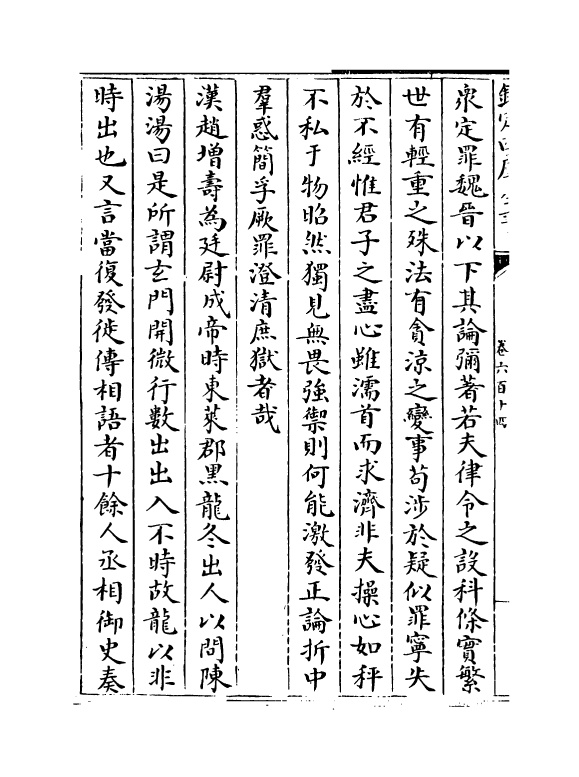 卷六百十四
衆定罪魏晉以下其論彌著若夫律令之設科條實繁
世有輕重之殊法有貪涼之變事苟涉於疑似罪寧失
於不經惟君子之盡心雖濡首而求濟非夫操心如秤
不私于物昭然獨見無畏強禦則何能激發正論折中
羣惑簡孚厥罪澄清庶獄者哉
漢趙増壽為廷尉成帝時東萊郡黑龍冬出人以問陳
湯湯曰是所謂玄門開微行數出出入不時故龍以非
時出也又言當復發徙傳相語者十餘人丞相御史奏